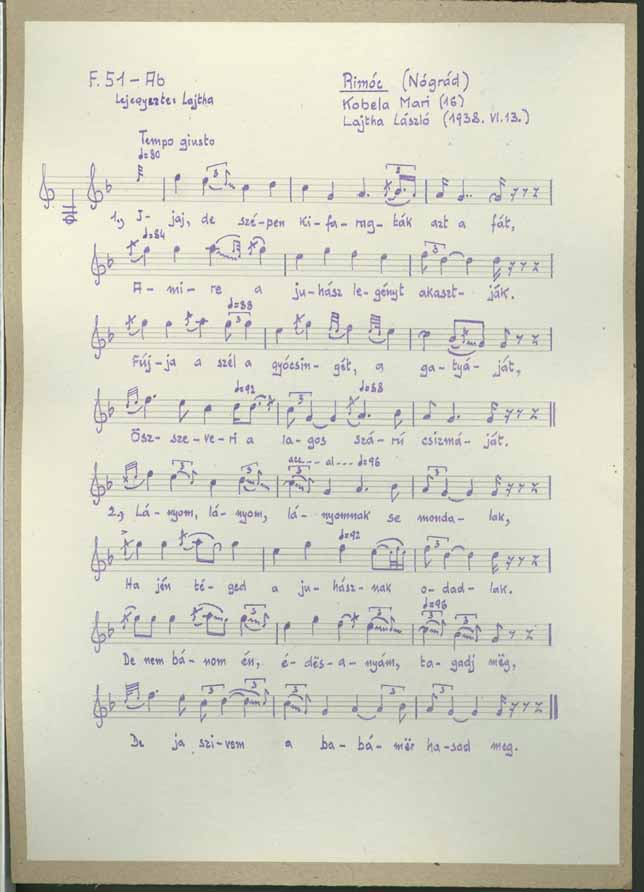 F. 51 – Ab
Lejegyezte: Lajtha
Rimóc (Nógrád)
Kobela Mari (16)
Lajtha László (1938. VI. 13.)
Tempo giusto
♩=80
3 3
1., I- jaj, de szé-pen ki-fa-rag-ták azt a fát,
♩=84
3
A-mi-re a ju-hász le-gényt akaszt-ják.
♩=88
3
Fúj-ja a szél a gyócsin-gét, a ga-tyá-ját,
♩=92 ♩=88
3
Ösz-sze-ve-ri a la-gos szá-rú csizmá-ját.
acc. --- al --- ♩=96
3 3 3 3
2., Lá-nyom, lá-nyom, lá-nyomnak se monda-lak,
♩=92
3
Ha jén té-ged a ju-hász-nak o-dad-lak.
♩=96
3 3 3 3
De nem bá-nom én, é-dës-a-nyám, ta-gadj mëg,
3 3 3 3
De ja szi-vem a ba-bá-mër ha-sad meg.